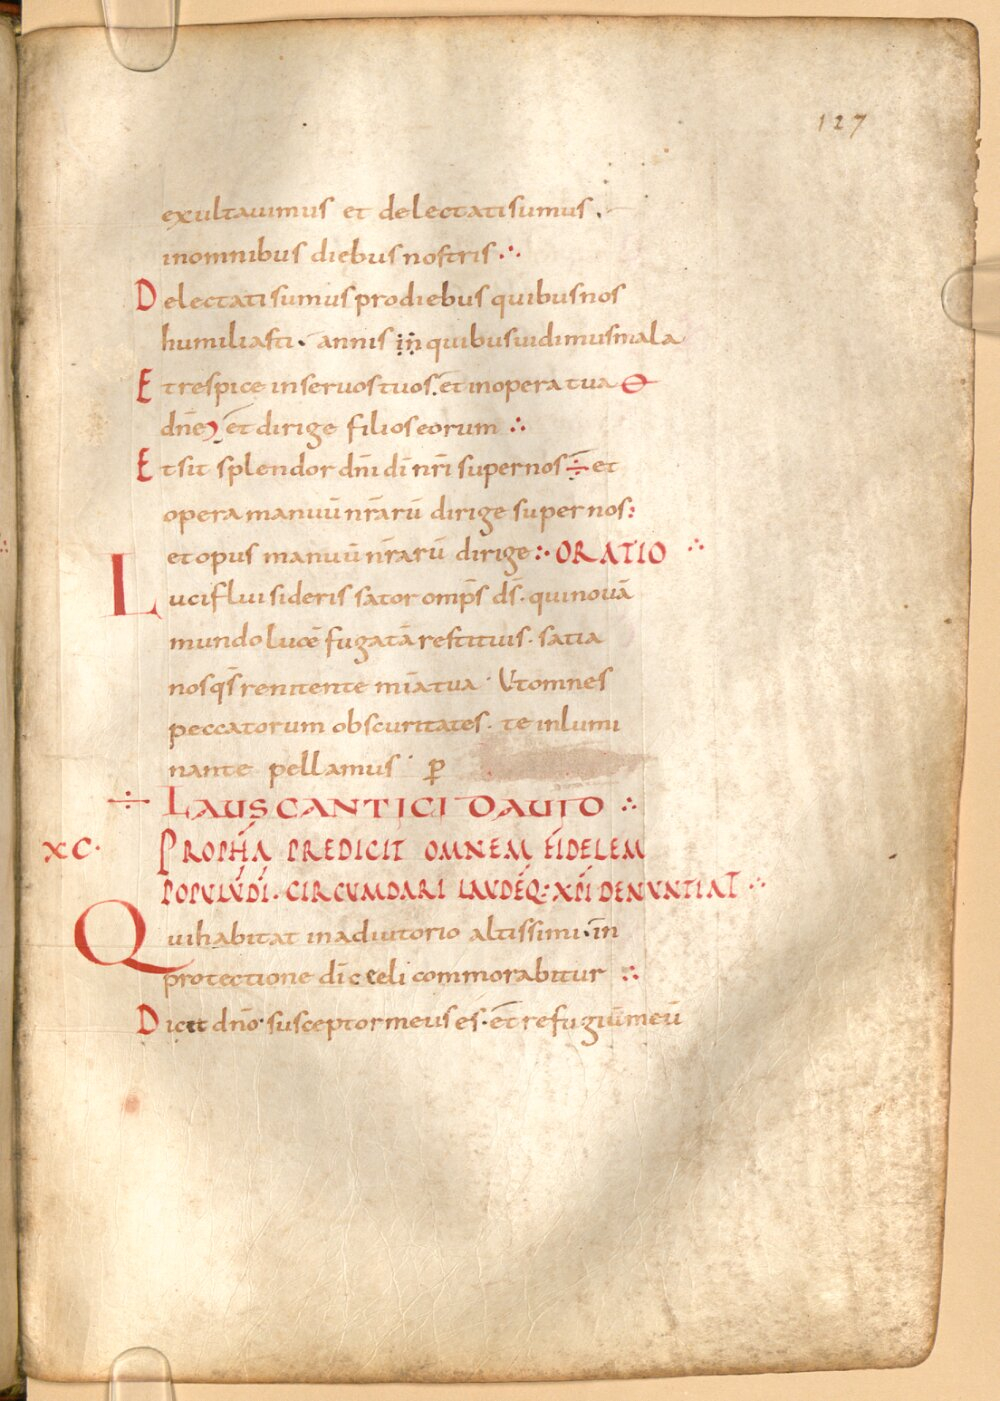 127
exultauimus et delectati sumus.
in omnibus diebus nostris ∴
Delectati sumus pro diebus quibus nos
humiliasti. annis in quibus uidimus mala
Et respice in seruos tuos. et in opera tua
dñe, et dirige filios eorum ∴
Et sit splendor dñi dī nr̄i super nos ÷ et
opera manuū nr̄arū dirige super nos:
et opus manuū nr̄arū dirige :· ORATIO ∴
Luciflui sideris sator omp̄s ds̄. qui nouā
mundo lucē fugatā restituis. satia
nos qs̄ renitente miā tua. Ut omnes
peccatorum obscuritates. te inlumi
nante pellamus. p̄
÷ LAUS CANTICI DAUID ∴
XC· PROPHA PREDICIT OMNEM FIDELEM
POPULŪ DĪ. CIRCUMDARI LAUDEQ: XPI DENUNTIAT ∴
Qui habitat in adiutorio altissimi. in
protectione dī cęli commorabitur ∴
Dicet dño. susceptor meus es. et refugiū meū